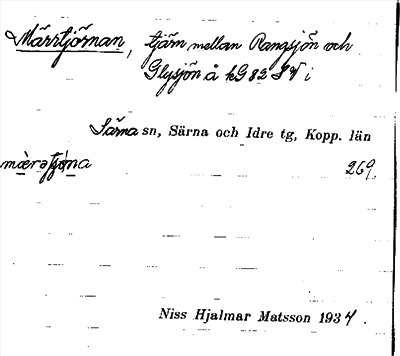 Märrtjörnan, tjärn mellan Rangsjön och
Glysjön å kG 82 SV i
Särna sn, Särna och Idre tg, Kopp. län
269.
Niss Hjalmar Matsson 1934.